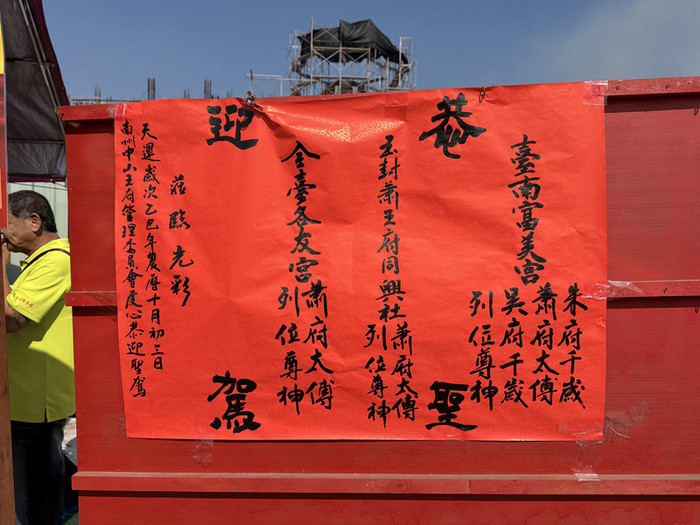 恭迎
聖駕
臺南富美宮
朱府千歲
蕭府太傅
吳府千歲
列位尊神
玉封蕭王府同興社
蕭府太傅
列位尊神
全臺各友宮
蕭府太傅
列位尊神
蒞臨光彩
天運歲次乙巳年農曆十月初三日
南州中山王府管理委員會虔心恭迎聖駕